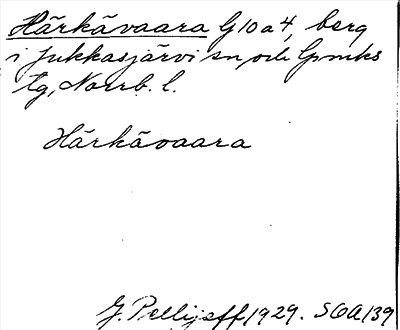 Härkävaara G10a4, berg
i Jukkasjärvi sn och Gmks
tg, Norrb. l.
Härkävaara
G. Pellijeff 1929. SOA 139